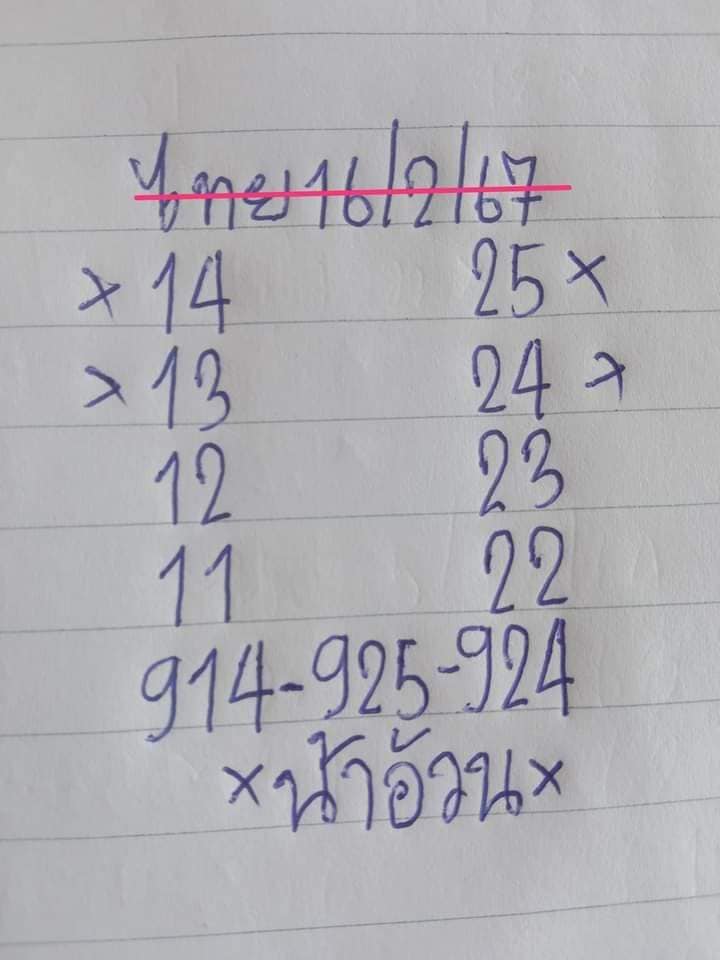 ไทย 16/2/67
× 14 25 ×
× 13 24 ×
12 23
11 22
914-925-924
× น้าอ้วน ×